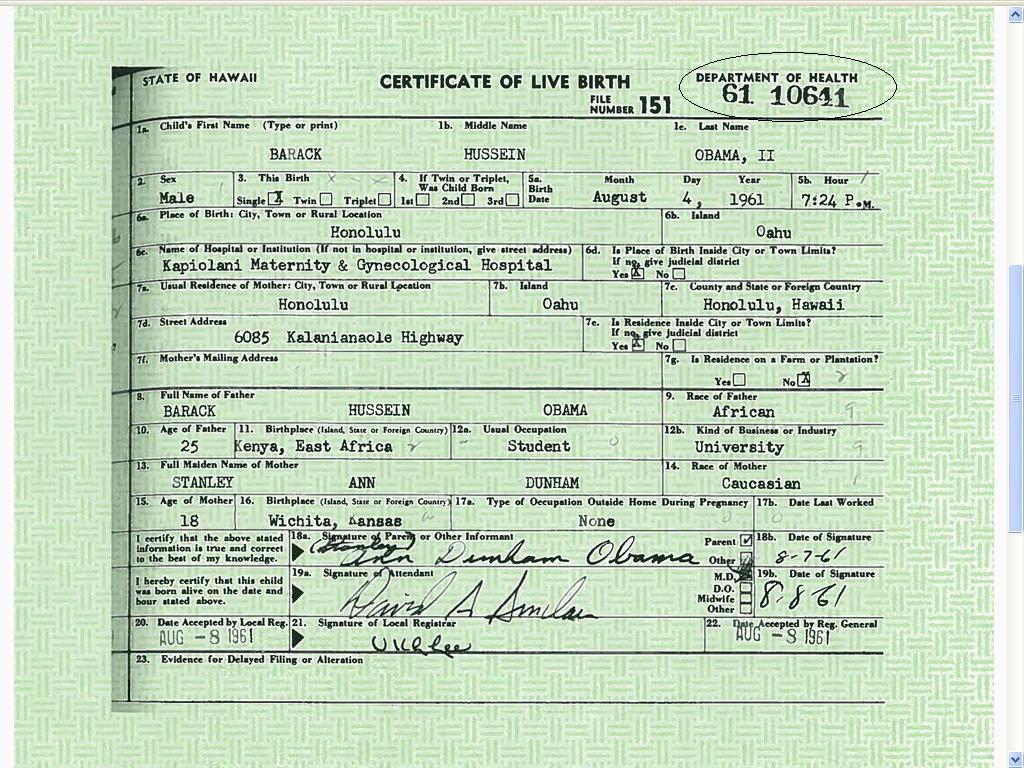 STATE OF HAWAII
CERTIFICATE OF LIVE BIRTH
DEPARTMENT OF HEALTH
FILE NUMBER 151
61 10641
1a. Child's First Name (Type or print)
1b. Middle Name
1c. Last Name
BARACK
HUSSEIN
OBAMA, II
2. Sex
Male
3. This Birth
Single X Twin Triplet
4. If Twin or Triplet,
Was Child Born
1st 2nd 3rd
5a. Birth Date
Month Day Year
August 4, 1961
5b. Hour
7:24 P.M.
6a. Place of Birth: City, Town or Rural Location
Honolulu
6b. Island
Oahu
6c. Name of Hospital or Institution (If not in hospital or institution, give street address)
Kapiolani Maternity & Gynecological Hospital
6d. Is Place of Birth Inside City or Town Limits?
If no, give judicial district
Yes X No
7a. Usual Residence of Mother: City, Town or Rural Location
Honolulu
7b. Island
Oahu
7c. County and State or Foreign Country
Honolulu, Hawaii
7d. Street Address
6085 Kalanianaole Highway
7e. Is Residence Inside City or Town Limits?
If no, give judicial district
Yes X No
7f. Mother's Mailing Address
7g. Is Residence on a Farm or Plantation?
Yes No X
8. Full Name of Father
BARACK HUSSEIN OBAMA
9. Race of Father
African
10. Age of Father
25
11. Birthplace (Island, State or Foreign Country)
Kenya, East Africa
12a. Usual Occupation
Student
12b. Kind of Business or Industry
University
13. Full Maiden Name of Mother
STANLEY ANN DUNHAM
14. Race of Mother
Caucasian
15. Age of Mother
18
16. Birthplace (Island, State or Foreign Country)
Wichita, Kansas
17a. Type of Occupation Outside Home During Pregnancy
None
17b. Date Last Worked
I certify that the above stated
information is true and correct
to the best of my knowledge.
18a. Signature of Parent or Other Informant
(Stanley) Ann Dunham Obama
Parent
Other
18b. Date of Signature
8-7-61
I hereby certify that this child
was born alive on the date and
hour stated above.
19a. Signature of Attendant
David A Sinclair
M.D.
D.O.
Midwife
Other
19b. Date of Signature
8-8-61
20. Date Accepted by Local Reg.
AUG -8 1961
21. Signature of Local Registrar
22. Date Accepted by Reg. General
AUG -8 1961
23. Evidence for Delayed Filing or Alteration